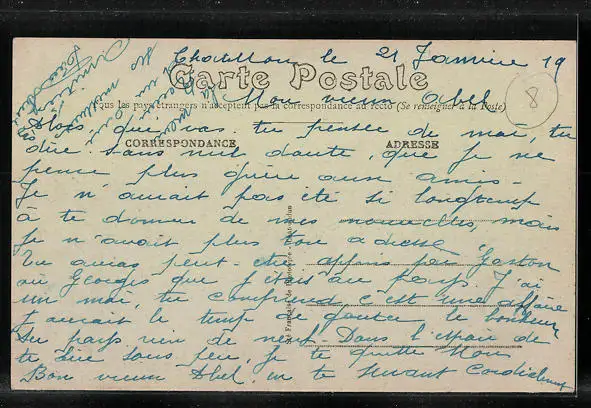 Chatillon le 21 Janvier 19
Carte Postale
Mon vieux Abel
Tous les pays étrangers n'acceptent pas la correspondance au recto (Se renseigner à la Poste)
8
Alors que vas tu penser de moi, tu
CORRESPONDANCE ADRESSE
dire sans nul doute, que je ne
pense plus guère aux amis -
Je n'aurait pas été si longtemp
à te donner de mes nouvelles, mais
Je n'avait plus ton adresse
Tu auras peut-être appris par Gaston
ou Georges que j'étais au pays. J'ai
un moi, tu comprend c'est une affaire
J'aurait le temp de gouter le bonheur
du pays rien de neuf - Dans l'espoir de
te lire sous peu, je te quitte Mon
Bon vieux Abel, en te serrant cordialement